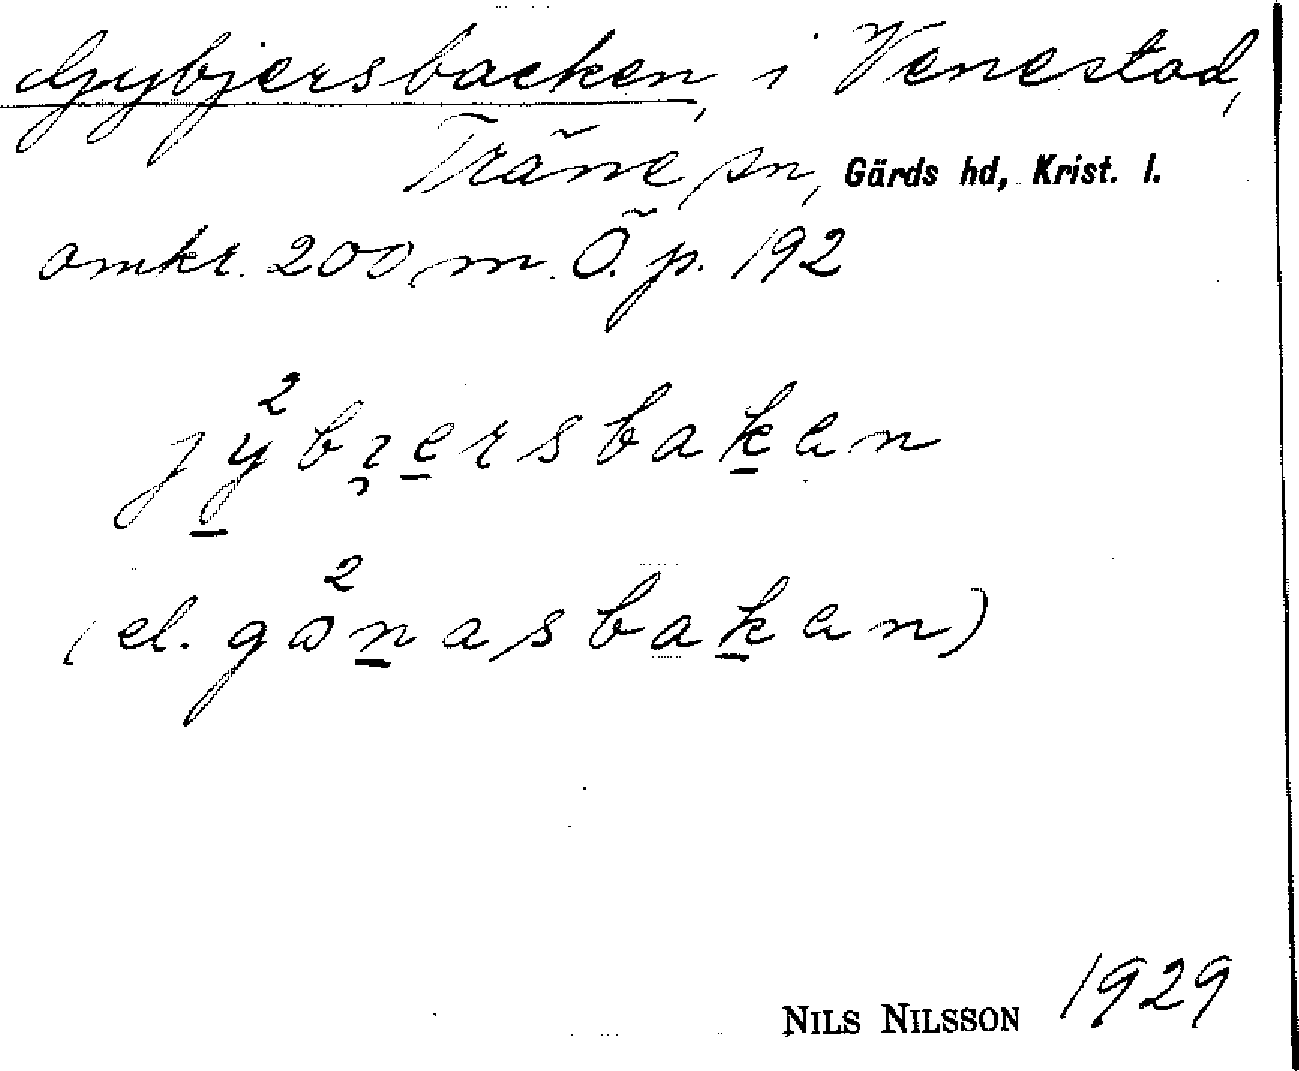 Gybjersbacken, i Venestad,
Träne sn, Gärds hd, Krist. l.
omkr. 200 m. Ö. p. 192
jy²bɪersbakan
(el. gɷ²nasbakan)
NILS NILSSON 1929